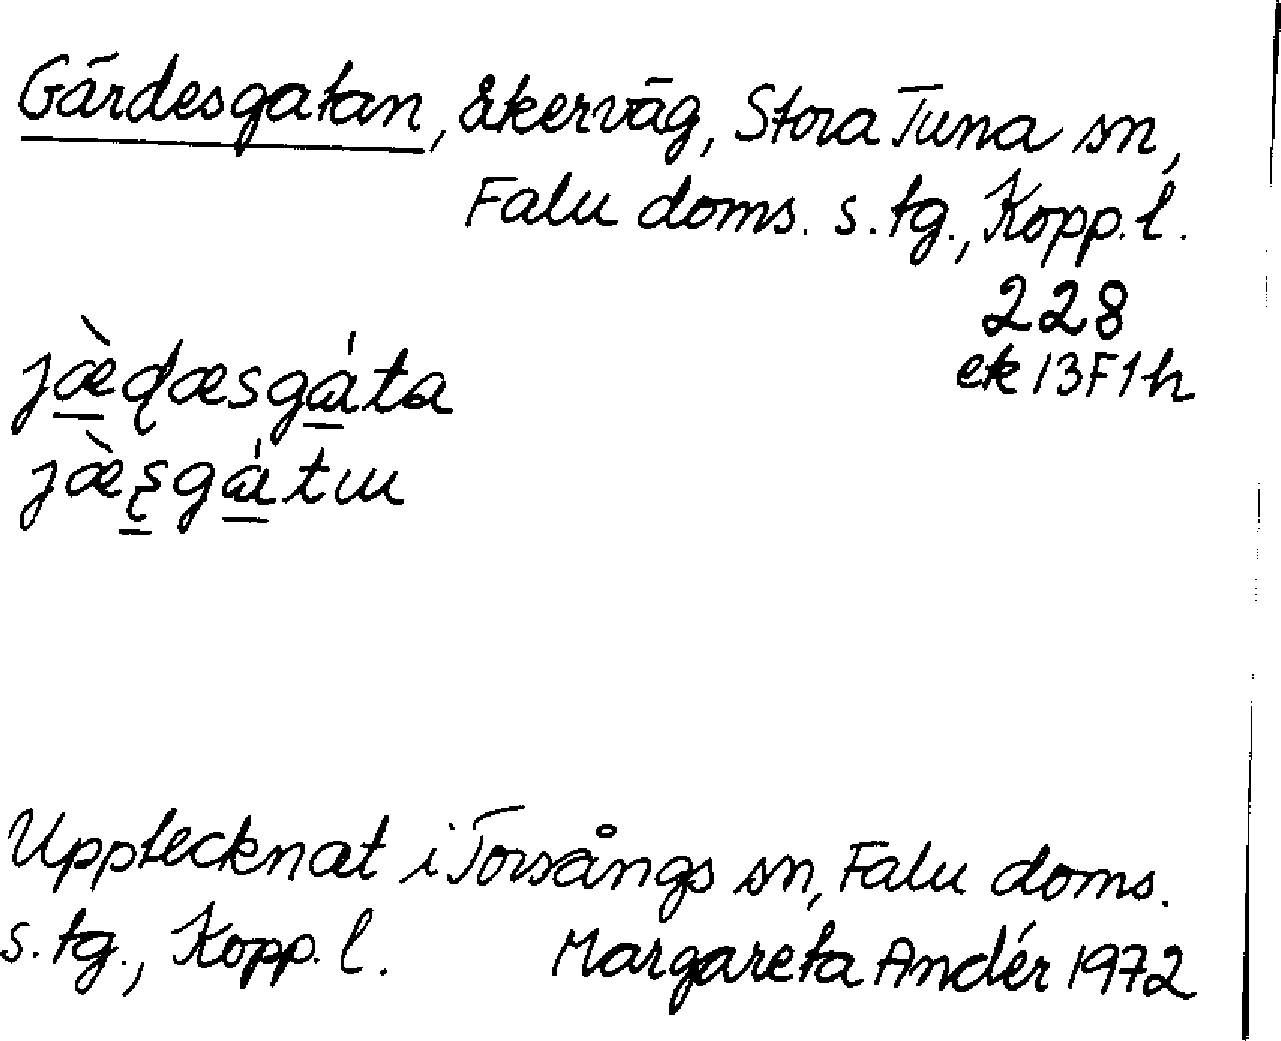 Gārdesgatan, åkervāg, Stora Tuna sn,
Falu doms. s. tg., Kopp. l.
228
ek 13F1h
jæ̠̀ɖæsgá̠ta
jæ̀ʂ̠gá̠tɯ
Upptecknat i Torsångs sn, Falu doms.
s. tg., Kopp. l. Margareta Andér 1972